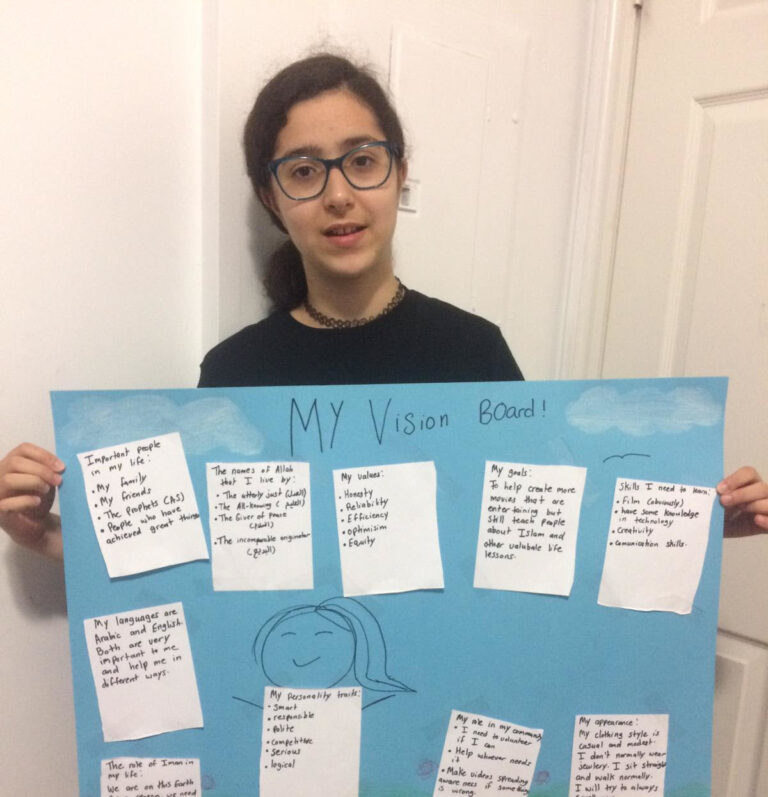 MY Vision BOard!
Important people
in my life:
• My family
• My friends
• The Prophets (AS)
• People who have
achieved great things
The names of Allah
that I live by:
• The utterly just (العدل)
• The All-Knowing (العليم)
• The Giver of peace
(السلام)
• The incomparable originator
(البديع)
My values:
• Honesty
• Reliability
• Efficiency
• optimisim
• Equity
My goals:
To help create more
movies that are
entertaining but
still teach people
about Islam and
other valuable life
lessons.
Skills I need to learn:
• Film (obviously)
• have some knowledge
in technology
• Creativity
• Comunication skills.
My languages are
Arabic and English.
Both are very
important to me
and help me in
different ways.
My Personality traits:
• Smart
• responsible
• Polite
• competitive
• serious
• logical
My role in my community
• I need to volunteer
if I can
• Help whoever needs
it
• Make videos spreading
awareness if something
is wrong.
My appearance:
My clothing style is
casual and modest.
I don't normally wear
jewlery. I sit straight
and walk normally.
I will try to always
The role of Iman in
my life:
We are on this Earth